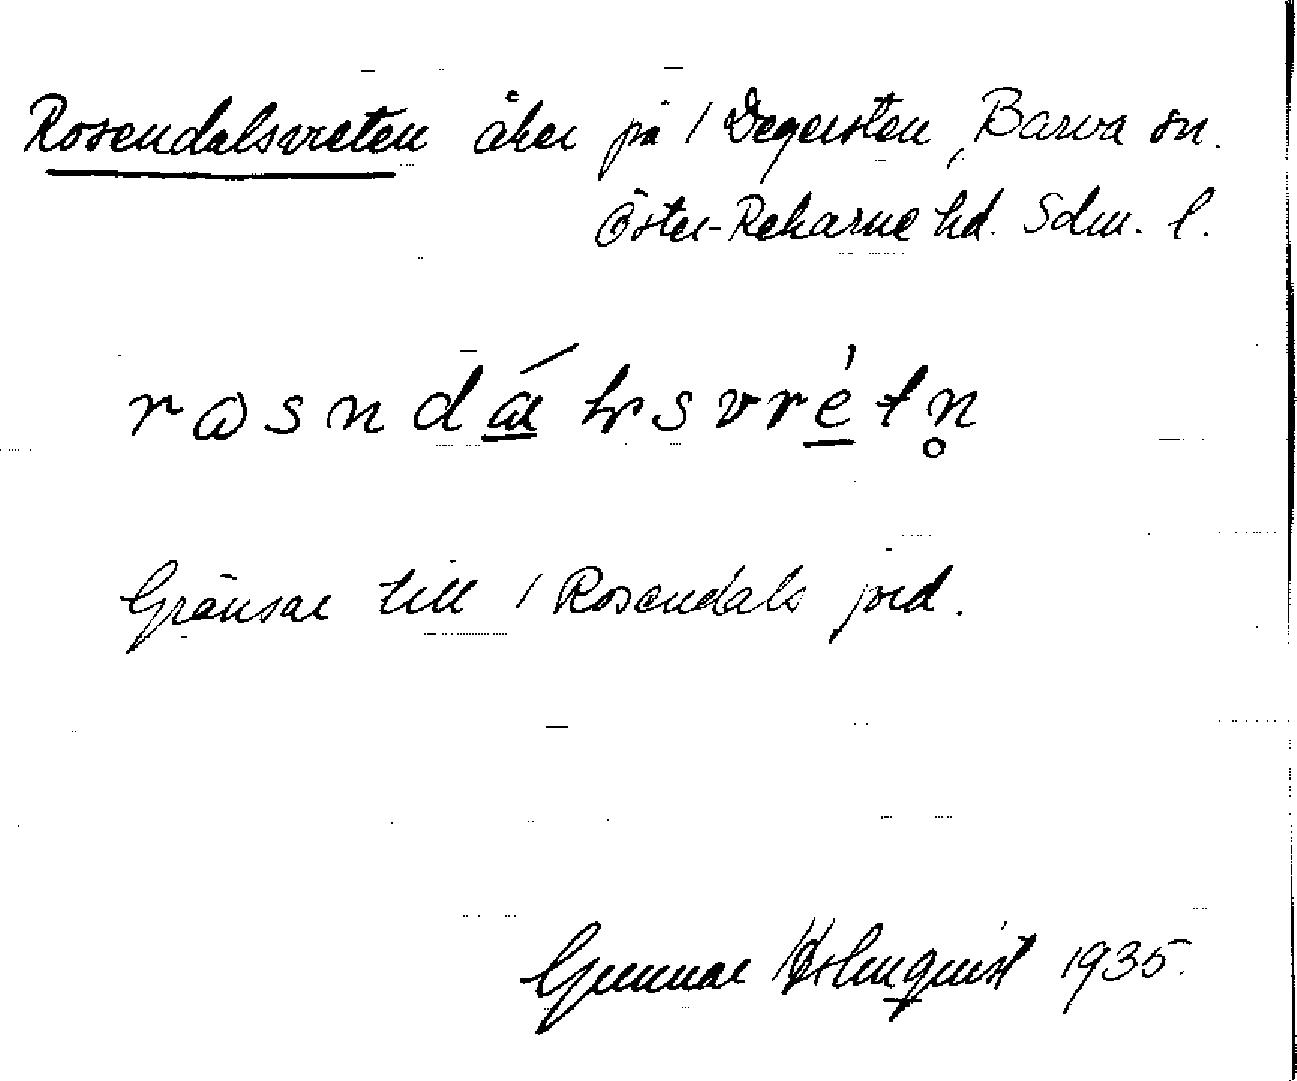 Rosendalsvreten åker på / Degersten, Barva sn.
Öster-Rekarne hd. Sdm. l.
rɷsndá̱ɑlsvré̱tn̥
Gränsar till / Rosendals jord.
Gunnar Holmquist 1935.